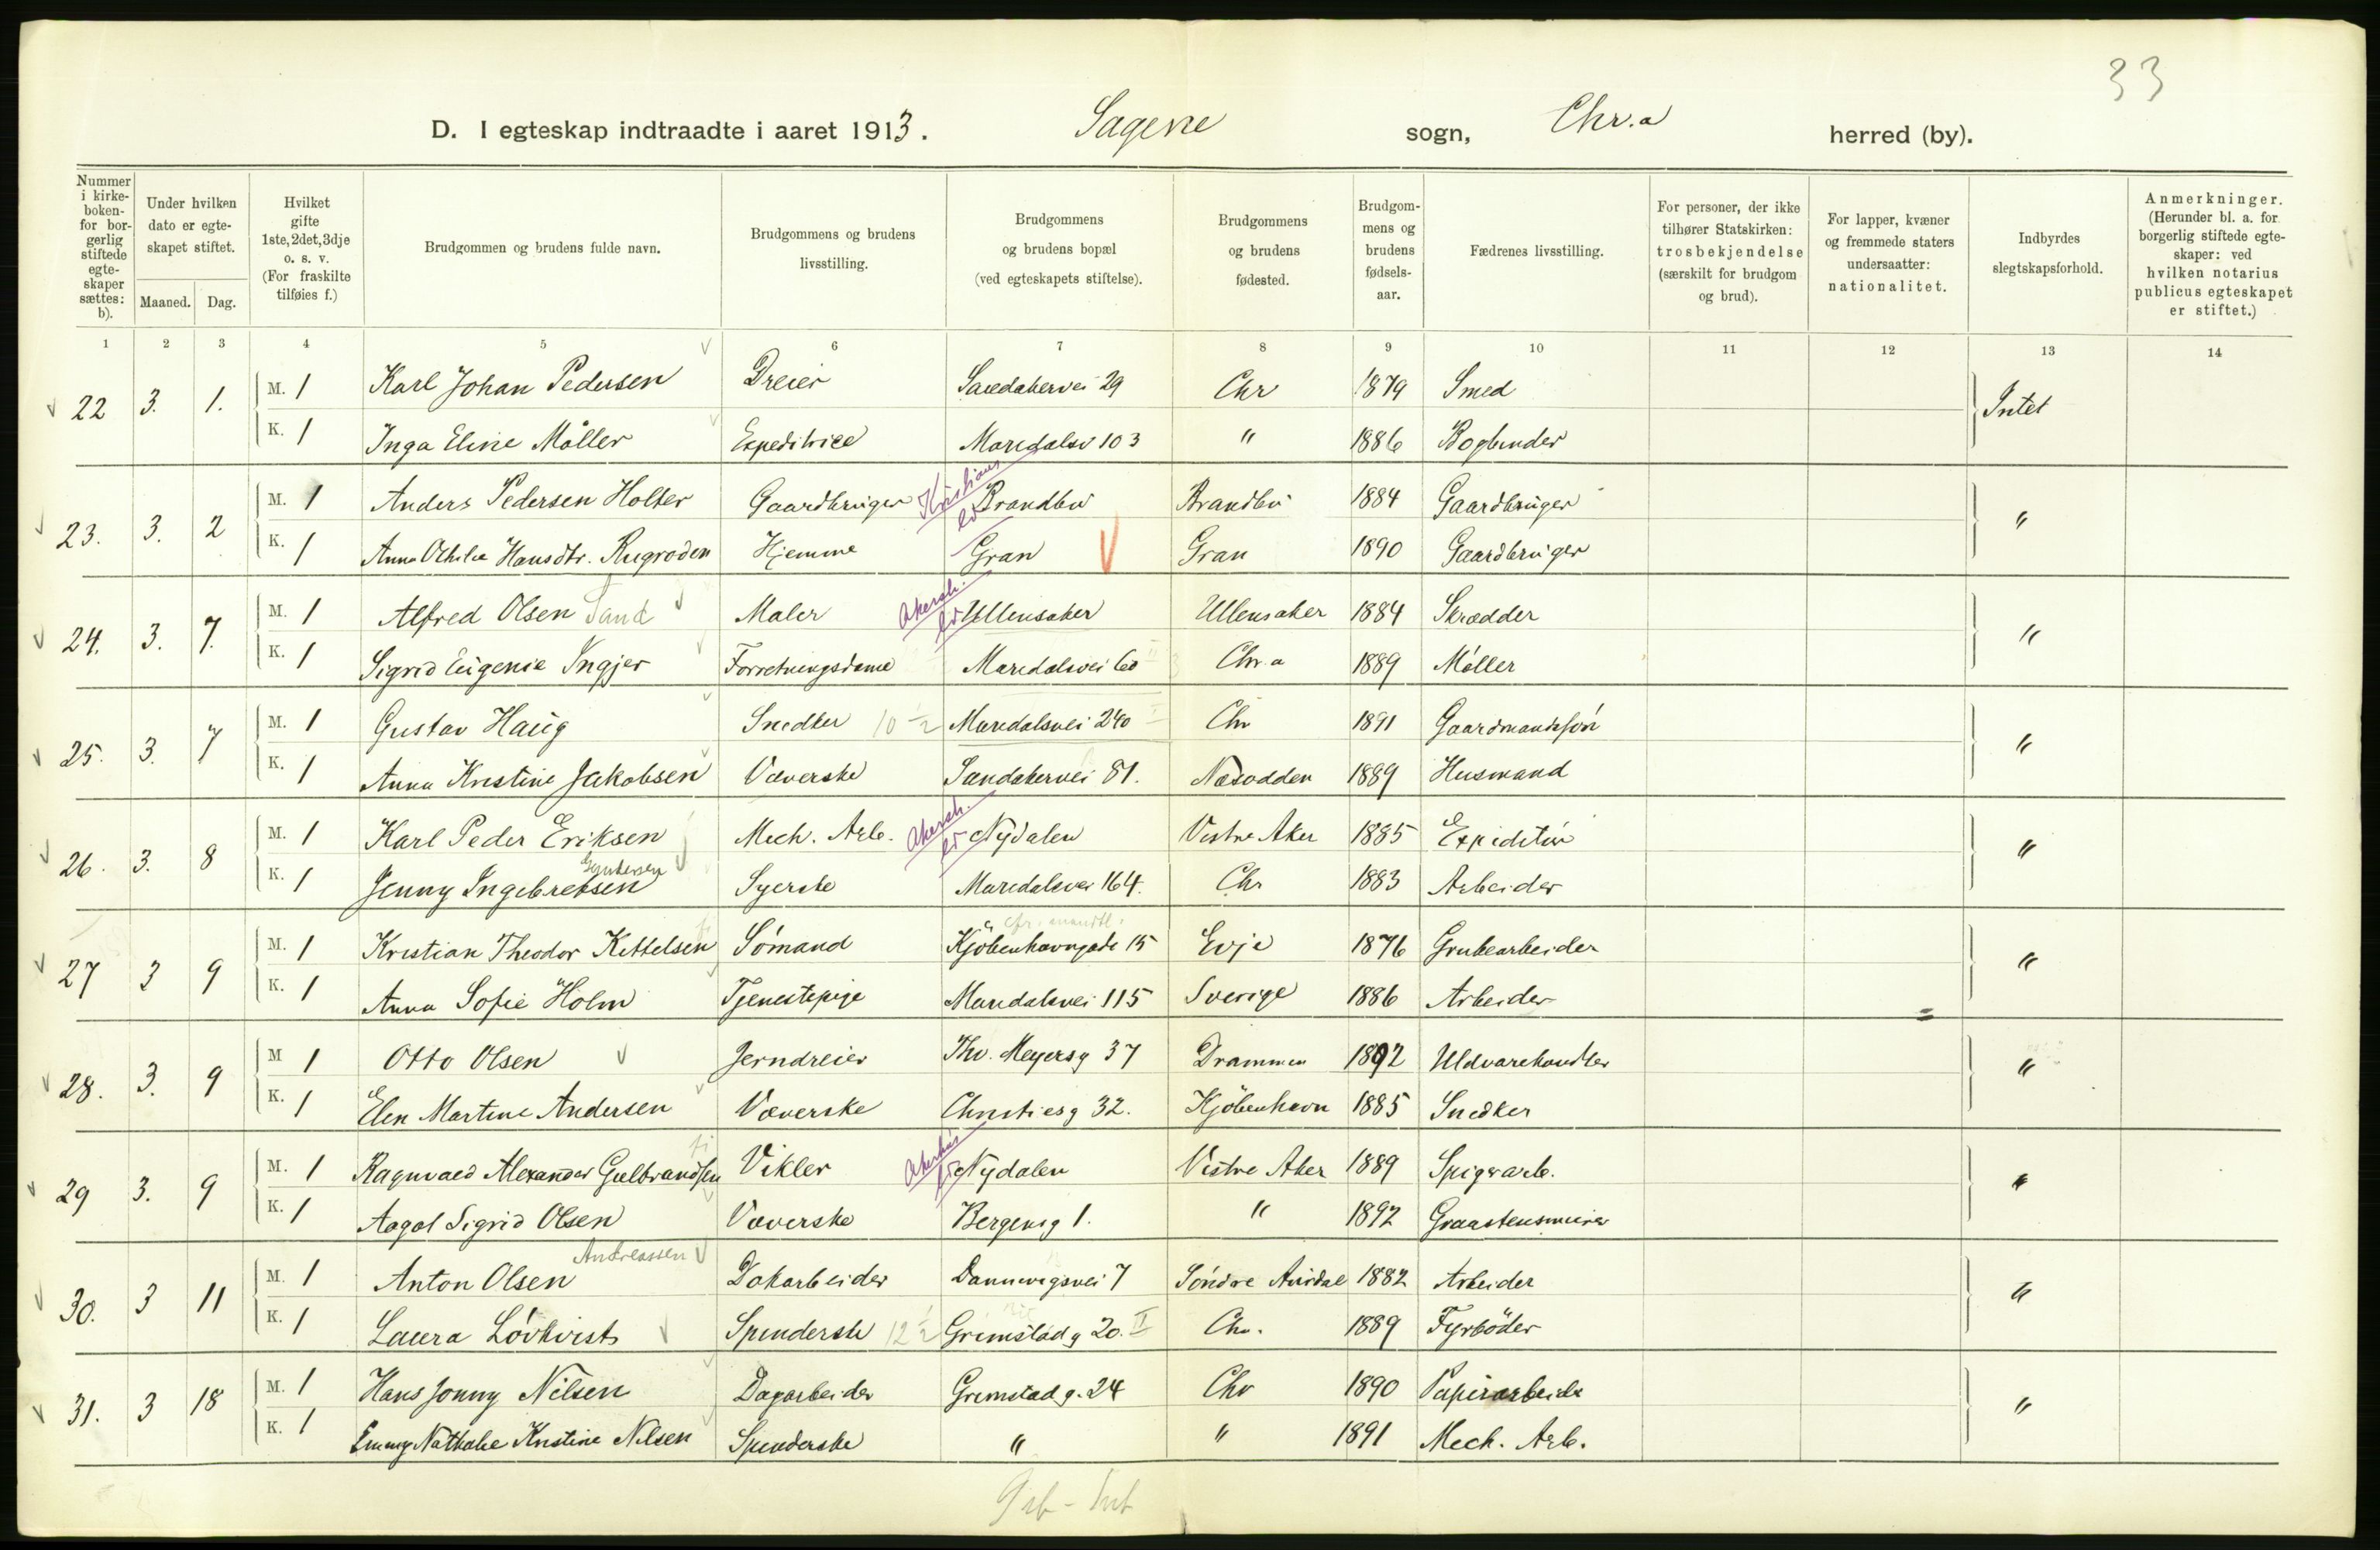 33
D. I egteskap indtraadte i aaret 1913. Sagene sogn, Chr.a herred (by).
Nummer i kirke-boken for bor-gerlig stiftede egte-skaper sættes: b).
Under hvilken dato er egte-skapet stiftet.
Maaned. Dag.
Hvilket gifte 1ste, 2det, 3dje o. s. v. (For fraskilte tilføies f.)
Brudgommen og brudens fulde navn.
Brudgommens og brudens livsstilling.
Brudgommens og brudens bopæl (ved egteskapets stiftelse).
Brudgommens og brudens fødested.
Brudgom-mens og brudens fødsels-aar.
Fædrenes livsstilling.
For personer, der ikke tilhører Statskirken: trosbekjendelse (særskilt for brudgom og brud).
For lapper, kvæner og fremmede staters undersaatter: nationalitet.
Indbyrdes slegtskapsforhold.
Anmerkninger. (Herunder bl. a. for borgerlig stiftede egte-skaper: ved hvilken notarius publicus egteskapet er stiftet.)
1 2 3 4 5 6 7 8 9 10 11 12 13 14
22 3. 1. M. 1 Karl Johan Pedersen Dreier Sandakervei 29 Chr 1879 Smed Intet
K. 1 Inga Eline Möller Expeditrice Maridalsv 103 " 1886 Bogbinder
23. 3. 2 M. 1 Anders Pedersen Holter Gaardbruger Kristians Brandbu Brandbu 1884 Gaardbruger "
K. 1 Anna Othilie Hansdtr. Rugroden Hjemme Gran Gran 1890 Gaardbruger
24. 3. 7. M. 1 Alfred Olsen Sand Maler Akersh. Ullensaker Ullensaker 1884 Skrædder "
K. 1 Sigrid Eugenie Ingjer Forretningsdame Maridalsvei 60 Chr.a 1889 Möller
25. 3. 7 M. 1 Gustav Haug Snedker 10 1/2 Maridalsvei 240 Chr 1891 Gaardmandssön "
K. 1 Anna Kristine Jakobsen Væverske Sandakervei 81. Næsodden 1889 Husmand
26. 3. 8 M. 1 Karl Peder Eriksen Mech. Arb. Akersh. Nydalen Vestre Aker 1885 Expeditör "
Gundersen
K. 1 Jenny Ingebretsen Syerske Maridalsvei 164. Chr 1883 Arbeider
27 3 9 M. 1 Kristian Theodor Kettelsen Sömand Kjöbenhavngade 15 Evje 1876 Grubearbeider "
K. 1 Anna Sofie Holm Tjenestepige Maridalsvei 115 Sverige 1886 Arbeider
28. 3. 9 M 1 Otto Olsen Jerndreier Thv. Meyersg 37 Drammen 1892 Uldvarehandler "
K. 1 Elen Martine Andersen Væverske Christiesg 32. Kjöbenhavn 1885 Snedker
29 3. 9 M. 1 Ragnvald Alexander Gulbrandsen Vikler Akershus Nydalen Vestre Aker 1889 Spigerarb. "
K. 1 Aagot Sigrid Olsen Væverske Bergensg 1. " 1892 Graastensmurer
Andreassen
30. 3 11 M. 1 Anton Olsen Dokarbeider Dannevigsvei 7 Söndre Aurdal 1882 Arbeider "
K. 1 Laura Lövkvist Spinderske 12 1/2 Grimstadg 20. II Chr. 1889 Fyrböder
31. 3 18 M. 1 Hans Jonny Nilsen Dagarbeider Grimstadg. 24 Chr 1890 Papirarbeider "
K. 1 Emmy Nathalie Kristine Nilsen Spinderske " " 1891 Mech. Arb.